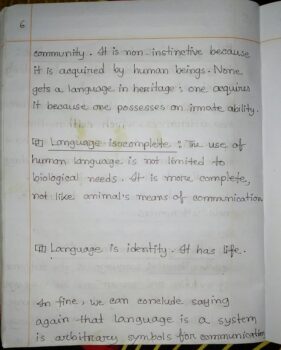 6
community. It is non-instinctive because
it is acquired by human beings. None
gets a language in heritage; one acquires
it because one possesses an innate ability.
Language isocomplete: The use of
human language is not limited to
biological needs. It is more complete,
not like animal's means of communication
Language is identity. It has life.
In fine, we can conclude saying
again that language is a system
is arbitrary symbols for communication